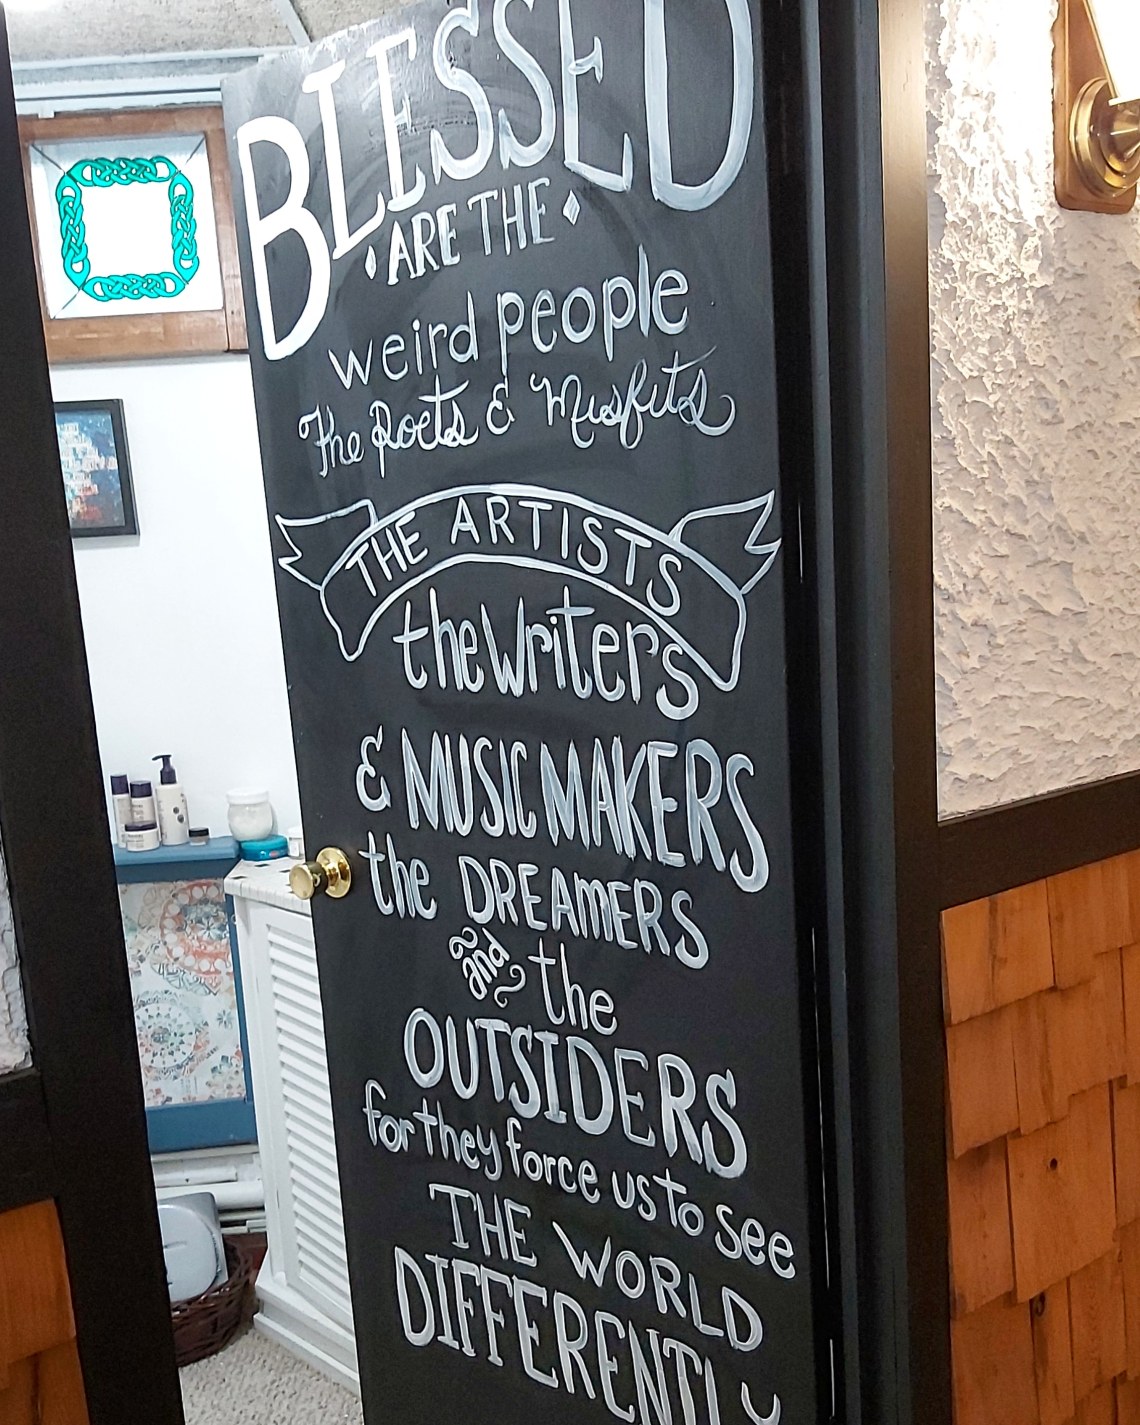 BLESSED
ARE THE
weird people
The Poets & Misfits
THE ARTISTS
the Writers
& MUSIC MAKERS
the DREAMERS
and the
OUTSIDERS
for they force us to see
THE WORLD
DIFFERENTLY